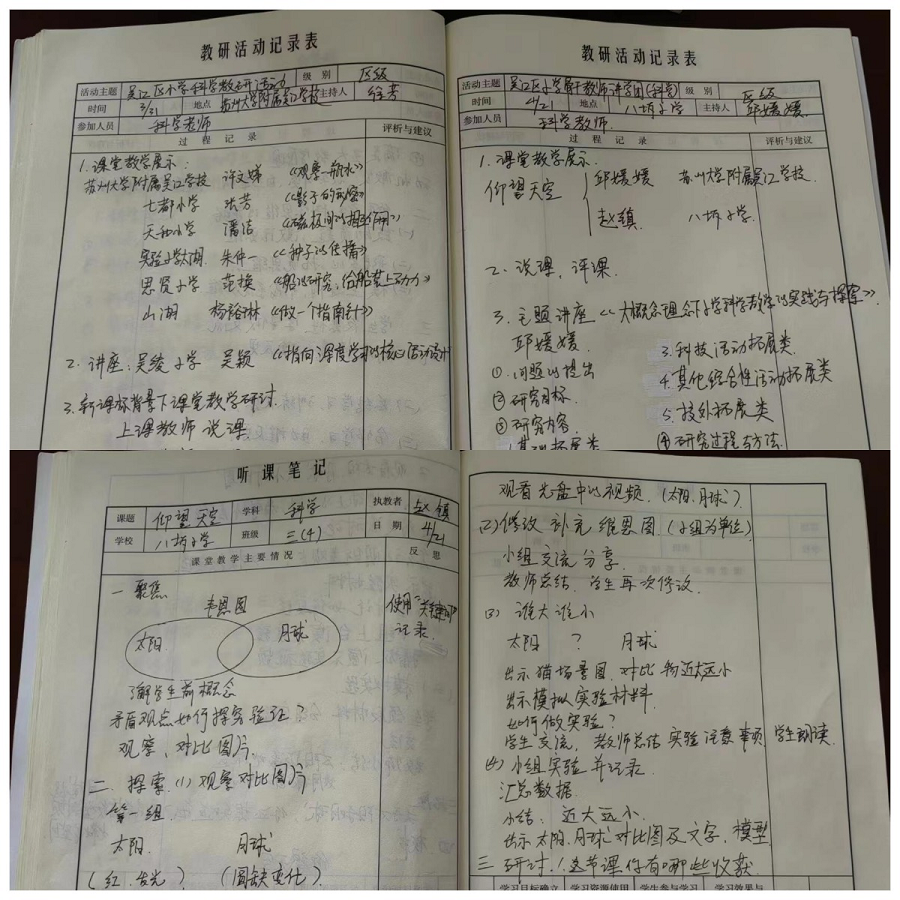 教研活动记录表
活动主题 吴江区小学科学教研活动 级别 区级
时间 3/21 地点 苏州大学附属吴江学校 主持人 徐芳
参加人员 科学老师
过程记录 评析与建议
1.课堂教学展示:
苏州大学附属吴江学校 许文娣 《观察一瓶水》
七都小学 张芳 《影子的观察》
天和小学 潘洁 《磁极间的相互作用》
实验小学太湖 朱仲一 《种子的传播》
思贤小学 范换 《船的研究,给船装上动力》
山湖 杨裕琳 《做一个指南针》
2.讲座:吴绫小学 吴颖 《指向深度学习的核心活动设计
3.新课标背景下课堂教学研讨.
上课教师 说课
教研活动记录表
活动主题 吴江区小学骨干教师讲学团(科学) 级别 区级
时间 4/21 地点 八坼小学 主持人 邱媛媛
参加人员 科学教师.
过程记录 评析与建议
1.课堂教学展示.
仰望天空 邱媛媛 苏州大学附属吴江学校.
赵镇 八坼小学.
2.说课,评课.
3.主题讲座《大概念理念下小学科学教学的实践与探索》.
邱媛媛.
①.问题的提出
②研究目标
③研究内容
1.基础拓展类
3.科技活动拓展类
4.其他综合性活动拓展类
5.校外拓展类
④研究过程与方法.
听课笔记
课题 仰望天空 学科 科学 执教者 赵镇
学校 八坼小学 班级 三(4) 日期 4/21
课堂教学主要情况 反思
一 聚焦
韦恩图
太阳. 月球
使用"关键词"
记录.
了解学生前概念
矛盾观点如何探究验证?
观察、对比图片.
二.探索.(1)观察对比图片
第一组.
太阳. 月球
(红、发光) (圆缺变化).
观看光盘中的视频.(太阳.月球?)
(2)修改 补充 维恩图(小组为单位)
小组交流分享.
教师总结.学生再次修改.
(3) 谁大谁小
太阳 ? 月球
出示猫场景图.对比 物近大远小
出示模拟实验材料.
如何做实验?
学生交流,老师总结 实验注意事项,学生朗读.
(4)小组实验并记录.
汇总数据.
小结:近大远小.
出示太阳.月球对比图及文字,模型
三 研讨.1.这节课你有哪些收获
学习目标确立 学习资源使用 学生参与学习 学习效果与